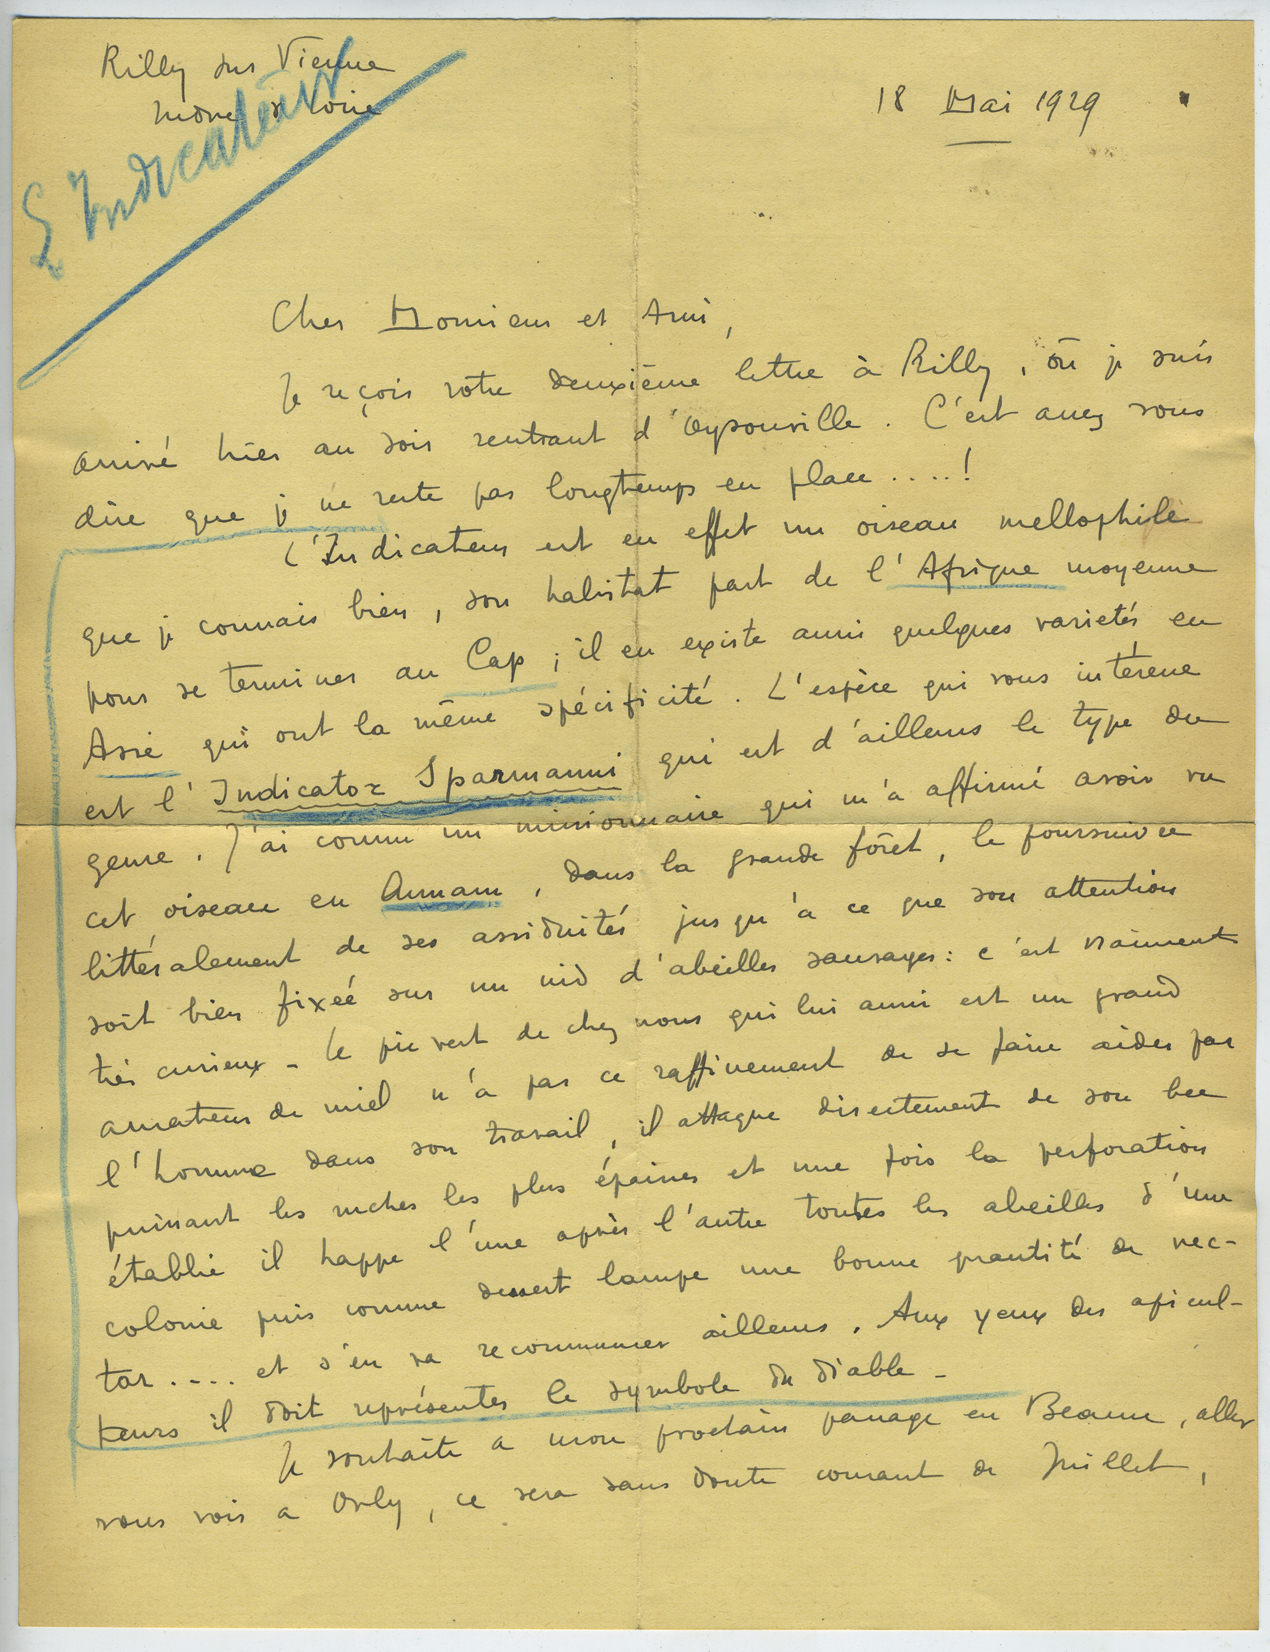 Rilly sur Vienne
Indre & Loire
L'Indicateur
18 Mai 1929
Cher Monsieur et Ami,
Je reçois votre deuxième lettre à Rilly, où je suis
arrivé hier au soir rentrant d'Oysonville. C'est assez vous
dire que je ne reste pas longtemps en place.....!
L'Indicateur est en effet un oiseau mellophile
que je connais bien, son habitat part de l'Afrique moyenne
pour se terminer au Cap ; il en existe aussi quelques varietés en
Asie qui ont la même spécificité. L'espèce qui vous intéresse
est l'Indicator Sparmanni qui est d'ailleurs le type du
genre. J'ai connu un missionnaire qui m'a affirmé avoir vu
cet oiseau en Annam, dans la grande forêt, le poursuivre
littéralement de ses assiduités jusqu'à ce que son attention
soit bien fixée sur un nid d'abeilles sauvages: c'est vraiment
très curieux - Le pic vert de chez nous qui lui aussi est un grand
amateur de miel n'a pas ce raffinement de se faire aider par
l'homme dans son travail, il attaque directement de son bec
puissant les ruches les plus épaisses et une fois la perforation
établie il happe l'une après l'autre toutes les abeilles d'une
colonie puis comme dessert lampe une bonne quantité de nec-
tar.... et s'en va recommencer ailleurs. Aux yeux des apicul-
teurs il doit représenter le symbole du diable -
Je souhaite a mon prochain passage en Beauce, aller
vous voir a Orly, ce sera sans doute courant de Juillet,